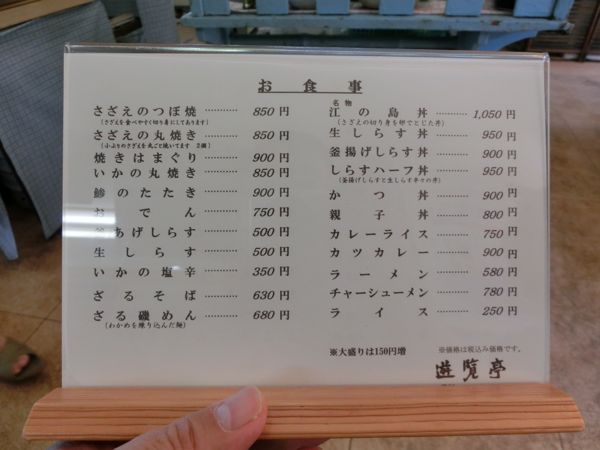 お食事
さざえのつぼ焼 ………… 850円
(さざえを食べやすく切り身にしてあります)
さざえの丸焼き ………… 850円
(小ぶりのさざえを丸ごと焼いてます 2個)
焼きはまぐり ………… 900円
いかの丸焼き ………… 850円
鯵のたたき ………… 900円
おでん ………… 750円
釜あげしらす ………… 500円
生しらす ………… 500円
いかの塩辛 ………… 350円
ざるそば ………… 630円
ざる磯めん ………… 680円
(わかめを練り込んだ麺)
名物
江の島丼 ………… 1,050円
(さざえの切り身を卵でとじた丼)
生しらす丼 ………… 950円
釜揚げしらす丼 ………… 900円
しらすハーフ丼 ………… 950円
(釜揚げしらすと生しらす半々の丼)
かつ丼 ………… 900円
親子丼 ………… 800円
カレーライス ………… 750円
カツカレー ………… 900円
ラーメン ………… 580円
チャーシューメン ………… 780円
ライス ………… 250円
※大盛りは150円増
※価格は税込み価格です。
遊覧亭